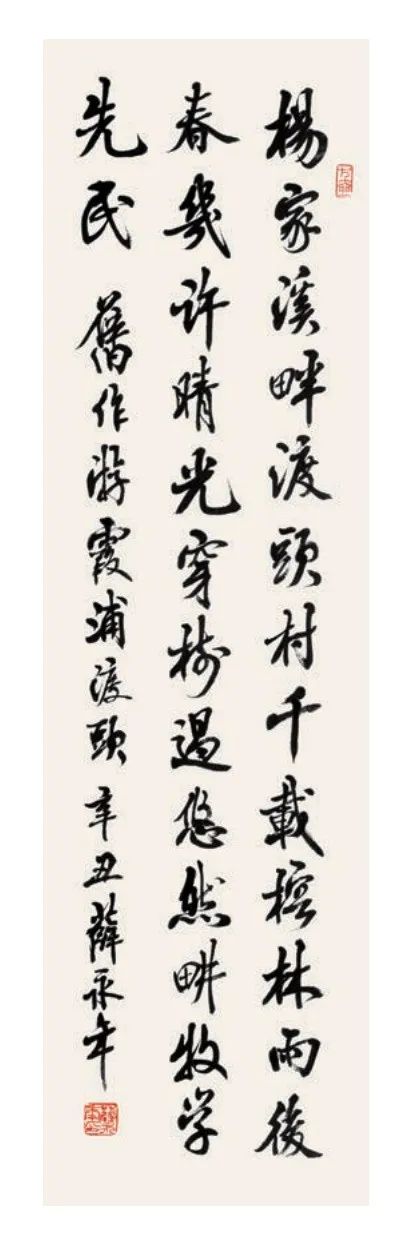 楊家溪畔渡頭村千載榕林雨後
春幾許晴光穿樹過悠然畊牧学
先民 舊作游霞浦渡頭 辛丑薛永年